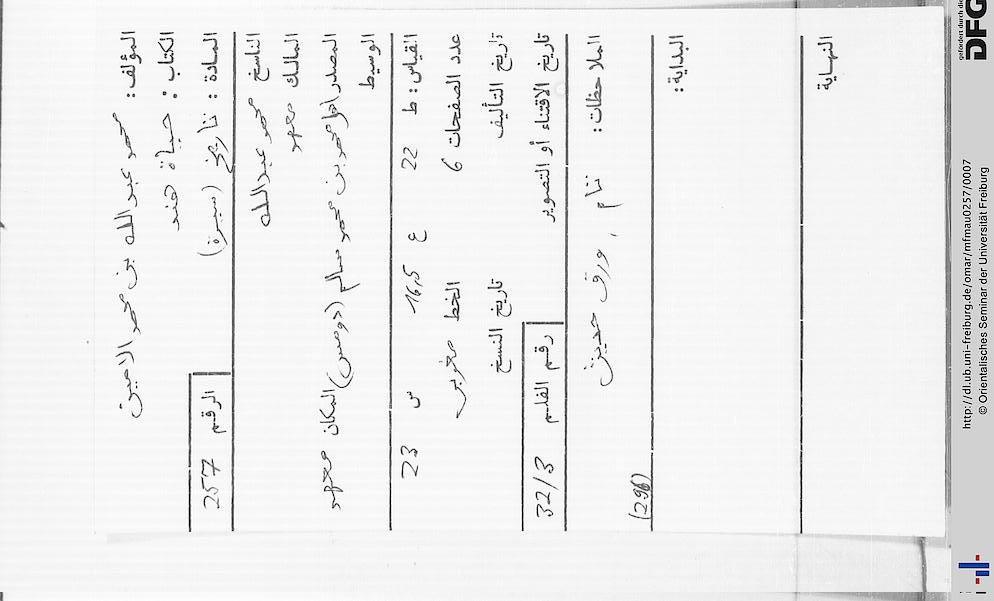 المؤلف: محمد عبد الله بن محمد الامين
الكتاب: حياة هند
المادة: تاريخ (سيرة)
الرقم 257
الناسخ محمد عبد الله
المالك معهد
المصدر محمد بن محمد سالم المكان معهد
الوسيط
القياس: ط 22 ع 16,5 س 23
عدد الصفحات 6 الخط مغربي
تاريخ التأليف تاريخ النسخ
تاريخ الاقتناء أو التصوير رقم الفلم 32/3
الملاحظات: تام، ورق حديث
(296)
البداية:
النهاية
gefördert durch die
DFG
http://dl.ub.uni-freiburg.de/omar/mfmau0257/0007
© Orientalisches Seminar der Universität Freiburg